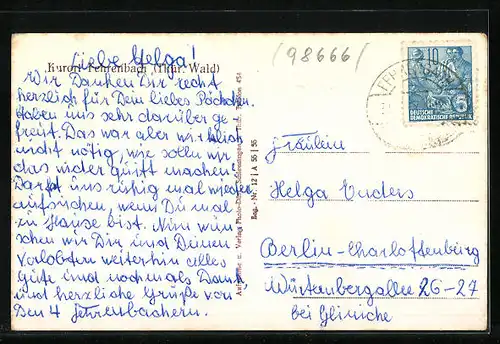 Liebe Helga!
Kurort Fehrenbach (Thür. Wald)
Wir Danken Dir recht
herzlich für Dein liebes Päckchen.
Haben uns sehr darüber ge
freut. Das war aber wirklich
nicht nötig, wie sollen wir
das wider gutt machen.
Darfst uns ruhig mal wieder
aufsuchen, wenn Du mal
zu Hause bist. Nun wün-
schen wir Dir und Deinen
Verlobten weiterhin alles
Gute und nochmals Dank
und herzliche Grüße von
den 4 Fehrenbachern.
Reg.-Nr. 12 | A 55 | 55
(98666)
10
5
DEUTSCHE
DEMOKRATISCHE REPUBLIK
Fräulein
Helga Enders
Berlin-Charlottenburg
Würtenbergallee 26-27
bei Gliniche